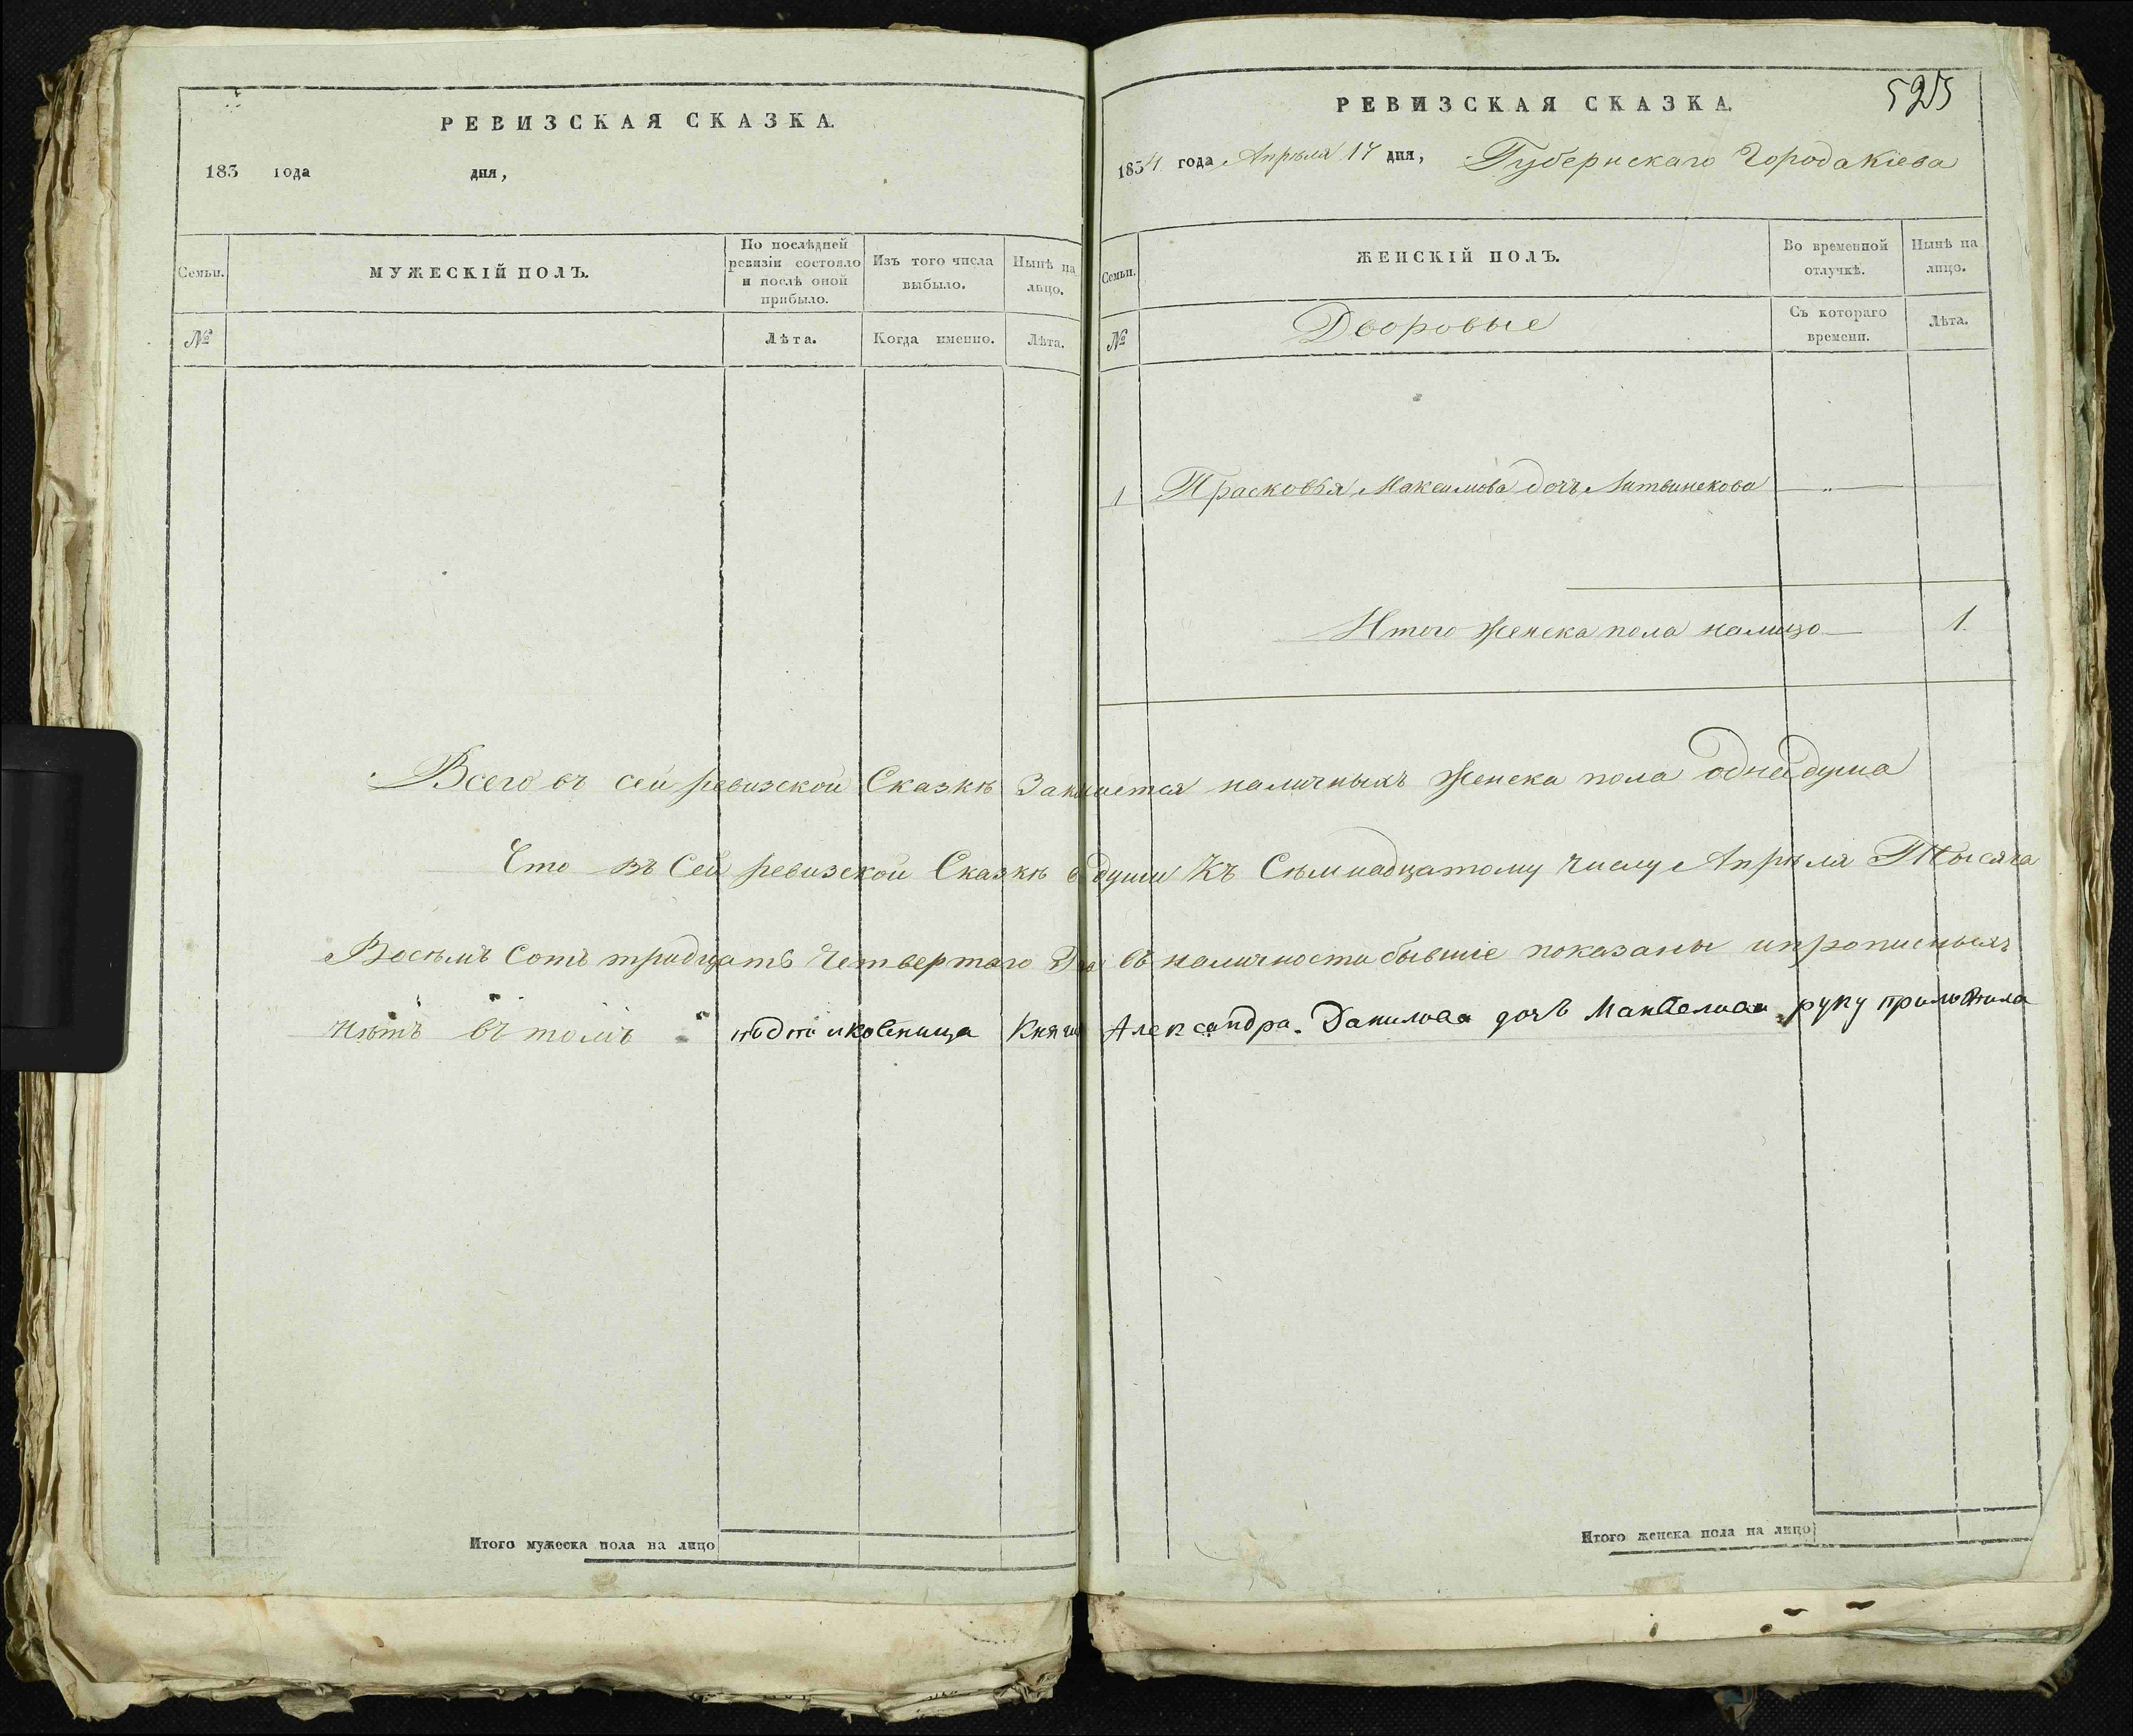 РЕВИЗСКАЯ СКАЗКА.
183 года дня,
Семьи.
МУЖЕСКІЙ ПОЛЪ.
По послѣдней ревизіи состояло и послѣ оной прибыло.
Изъ того числа выбыло.
Нынѣ на лицо.
№
Лѣта.
Когда именно.
Лѣта.
525
РЕВИЗСКАЯ СКАЗКА.
1834 года Апрѣля 17 дня, Губернскаго Города Кіева
Семьи.
ЖЕНСКІЙ ПОЛЪ.
Во временной отлучкѣ.
Нынѣ на лицо.
№
Дворовые
Съ котораго времени.
Лѣта.
1 Прасковья Максимова дочь Литвинскова
Итого женска пола налицо 1.
Всего въ сей ревизской Сказкѣ наличныхъ женска пола одна душа
Что въ Сей ревизской Сказкѣ души Къ Сѣмнадцатому числу Апрѣля Тысяча
Восѣмъ Сотъ тридцать Четвертаго въ наличности бывшіе показаны ипрописныхъ
нѣтъ въ томъ Александра Данилова дочь руку приложила
Итого мужеска пола на лицо
Итого женска пола на лицо